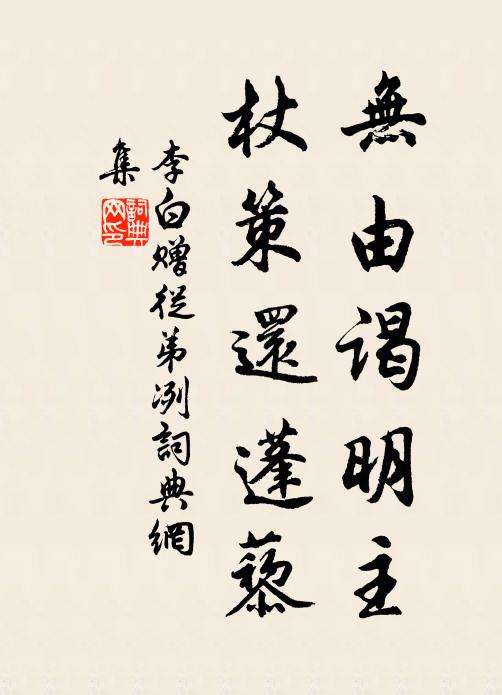 無由谒明主
杖策還蓬藜
李白赠從弟冽詞典網
集
詞典网印